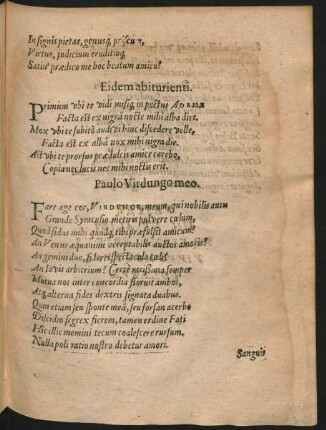 Insignis pietas, genusq, priscum,
Virtus, judicium eruditioq.
Satin' prædico me hoc beatum amico?
Eidem abiturienti.
Primum vbi te vidi misiq, in pectus
Facta est ex nigrâ nocte mihi alba dies.
Mox vbi te subitò audivi hinc discedere velle,
Facta est ex albâ nox mihi nigra die.
Ast vbi te prorsus prædulcis amice carebo,
nec lucis nec mihi noctis erit.
Paulo Virdungo meo.
Fare age cor, VIRDUNGE, meum, qui nobilis ausu
Grande Syracusio metiris pulvere cœlum,
Quod sidus mihi quodq, tibi præfulsit amicum?
An Venus æquanimi acceptabilis auctor amoris?
An gemini duo, sideri spectacula cæli?
An Iovis arbitrium? Certè verissima semper
Mutua nos inter concordia fioruit ambos,
Atq, alterna fides dextris signata duabus.
Quin etiam jen sponte meâ, seu forsan acerbo
Discidio segrex fierem, tamen ordine Fati
Hic illic memini tecum coalescere rursum.
Nulla poli ratio nostro debetur amori.
Sanguis